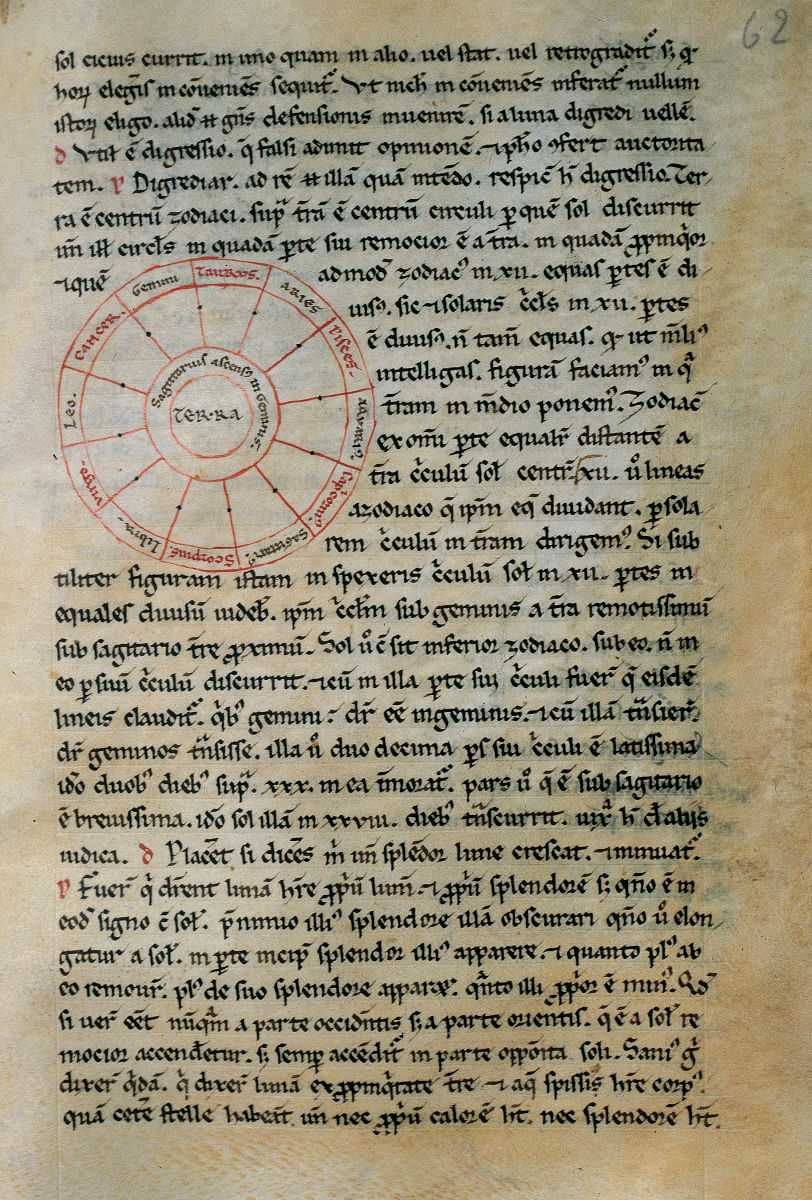 62
sol cicius currit. in uno quam in alio. uel stat. uel retrogradit᷑ s; qr
horū elegĩs inc̄oueniēs sequit᷑. Vt nich̄ inc̄oueniēs inferat᷑ nullum
istorū eligo. alid̄ defensionis inuenirē. si a luna digredi uellē.
d Vtił ē digressio. q̄ falsi adimit opinionē. ⁊ ph̄o ꝯfert auctorita
tem. p Digrediar. ad rē illā quā intēdo. respic̄ h̄ digressio. Ter
ra ē centrū zodiaci. sup̄ t̄rā ē centrū circuli p quē sol discurrit
un̄ illi circłs in quadā ꝑte sui remocior ē a t̄ra. in quadā ꝓpinq̄or
⁊ iquē
ad mod̄ zodiac᷒ in xii. equas ꝑtes ē di
uisꝰ. sic ⁊ solaris c̄cłs in xii. ꝑtes
ē diuisꝰ. ñ tam̄ equas. qr ut m̄liꝰ
intelligas. figurā faciamꝰ in q̄
t̄ram in m̄dio ponemꝰ. Zodiac̄
ex om̄i ꝑte equalr̄ distantē a
t̄ra c̄culū soł centr̄ xii. ů lineas
a zodiaco q̄ ip̄m eq̄ diuidant. ꝑ sola
rem c̄culū in t̄ram dirigemꝰ. Si sub
tiliter figuram istam inspexeris c̄culū soł in xii. ꝑtes in
equales diuisū uideb̄. ip̄m c̄cłm sub geminis a t̄ra remotissimū
sub sagitario t̄re ꝓximū. Sol ů c̄ sit inferior zodiaco. sub eo. ñ in
eo ꝑ suū c̄culū discurrit. ⁊ cū in illa ꝑte sui c̄culi fuer̄ q̄ eisdē
lineis claudit᷑. q̄bꝰ gemini: dr̄ eē in geminis. ⁊ cū illā t̄nsier̄.
dr̄ geminos t̄nsisse. illa ů duodecima ꝑs sui c̄culi ē latissima
iđo duobꝰ diebꝰ sup̄. xxx. in ea ī morat᷑. pars ů q̄ ē sub sagitario
ē breuissima. iđo sol illā in xxviii. diebꝰ t̄nscurrit. uix̄ h̄ d̄ aliis
iudica. d Placet̄ si dicēs m̄ un̄ splēdor lune crescat. ⁊ minuat᷑.
p Fuer̄ q̄ dr̄ent lunā h̄re ꝓpū lum̄. ⁊ ꝓpū splendorē s; qn̄o ē in
eod̄ signo c̄ soł. p̄ nimio illiꝰ splendore illā obscurari qn̄o ů elon
gatur a soł. in ꝑte incip̄ splendor illiꝰ apparere. ⁊ quanto plꝰ ab
eo remouet̄. plꝰ de suo splendore apparet. q̄nto illi ꝓpior ē minꝰ. Qd̄
si uer̄ eēt nūq̄m a parte occidn̄tis s; a parte orientis. q̄ ē a soł re
mocior accenderetur. s; semꝑ accēdit᷑ in parte oppōita soli. Saniꝰ g̊
dixer̄ q̄dā. q̄ dixer̄ lunā ex ꝓpinq̄tate t̄re ⁊ aq̄ spissiꝰ h̄re corpꝰ.
quā cet̄e stelle habent̄ un̄ nec ꝓpū calorē h̄t. nec splendorē h̄t.
TAURUS.
ARIES
PISCES.
Capͥcornꝰ
Sagittariꝰ
Scorpiꝰ
Libra
uirgo.
Leo.
CANCER.
Gemini
Sagitarius ascensꝰ in Geminis.
TERRA